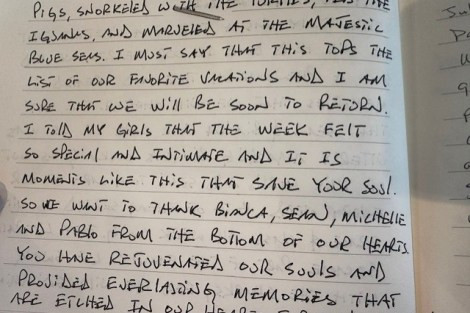 PIGS, SNORKELED WITH THE TURTLES, FED THE
IGUANAS, AND MARVELED AT THE MAJESTIC
BLUE SEAS. I MUST SAY THAT THIS TOPS THE
LIST OF OUR FAVORITE VACATIONS AND I AM
SURE THAT WE WILL BE SOON TO RETURN.
I TOLD MY GIRLS THAT THE WEEK FELT
SO SPECIAL AND INTIMATE AND IT IS
MOMENTS LIKE THIS THAT SAVE YOUR SOUL.
SO WE WANT TO THANK BIANCA, SEAN, MICHELLE
AND PABLO FROM THE BOTTOM OF OUR HEARTS.
YOU HAVE REJUVENATED OUR SOULS AND
PROVIDED EVERLASTING MEMORIES THAT
ARE ETCHED IN OUR